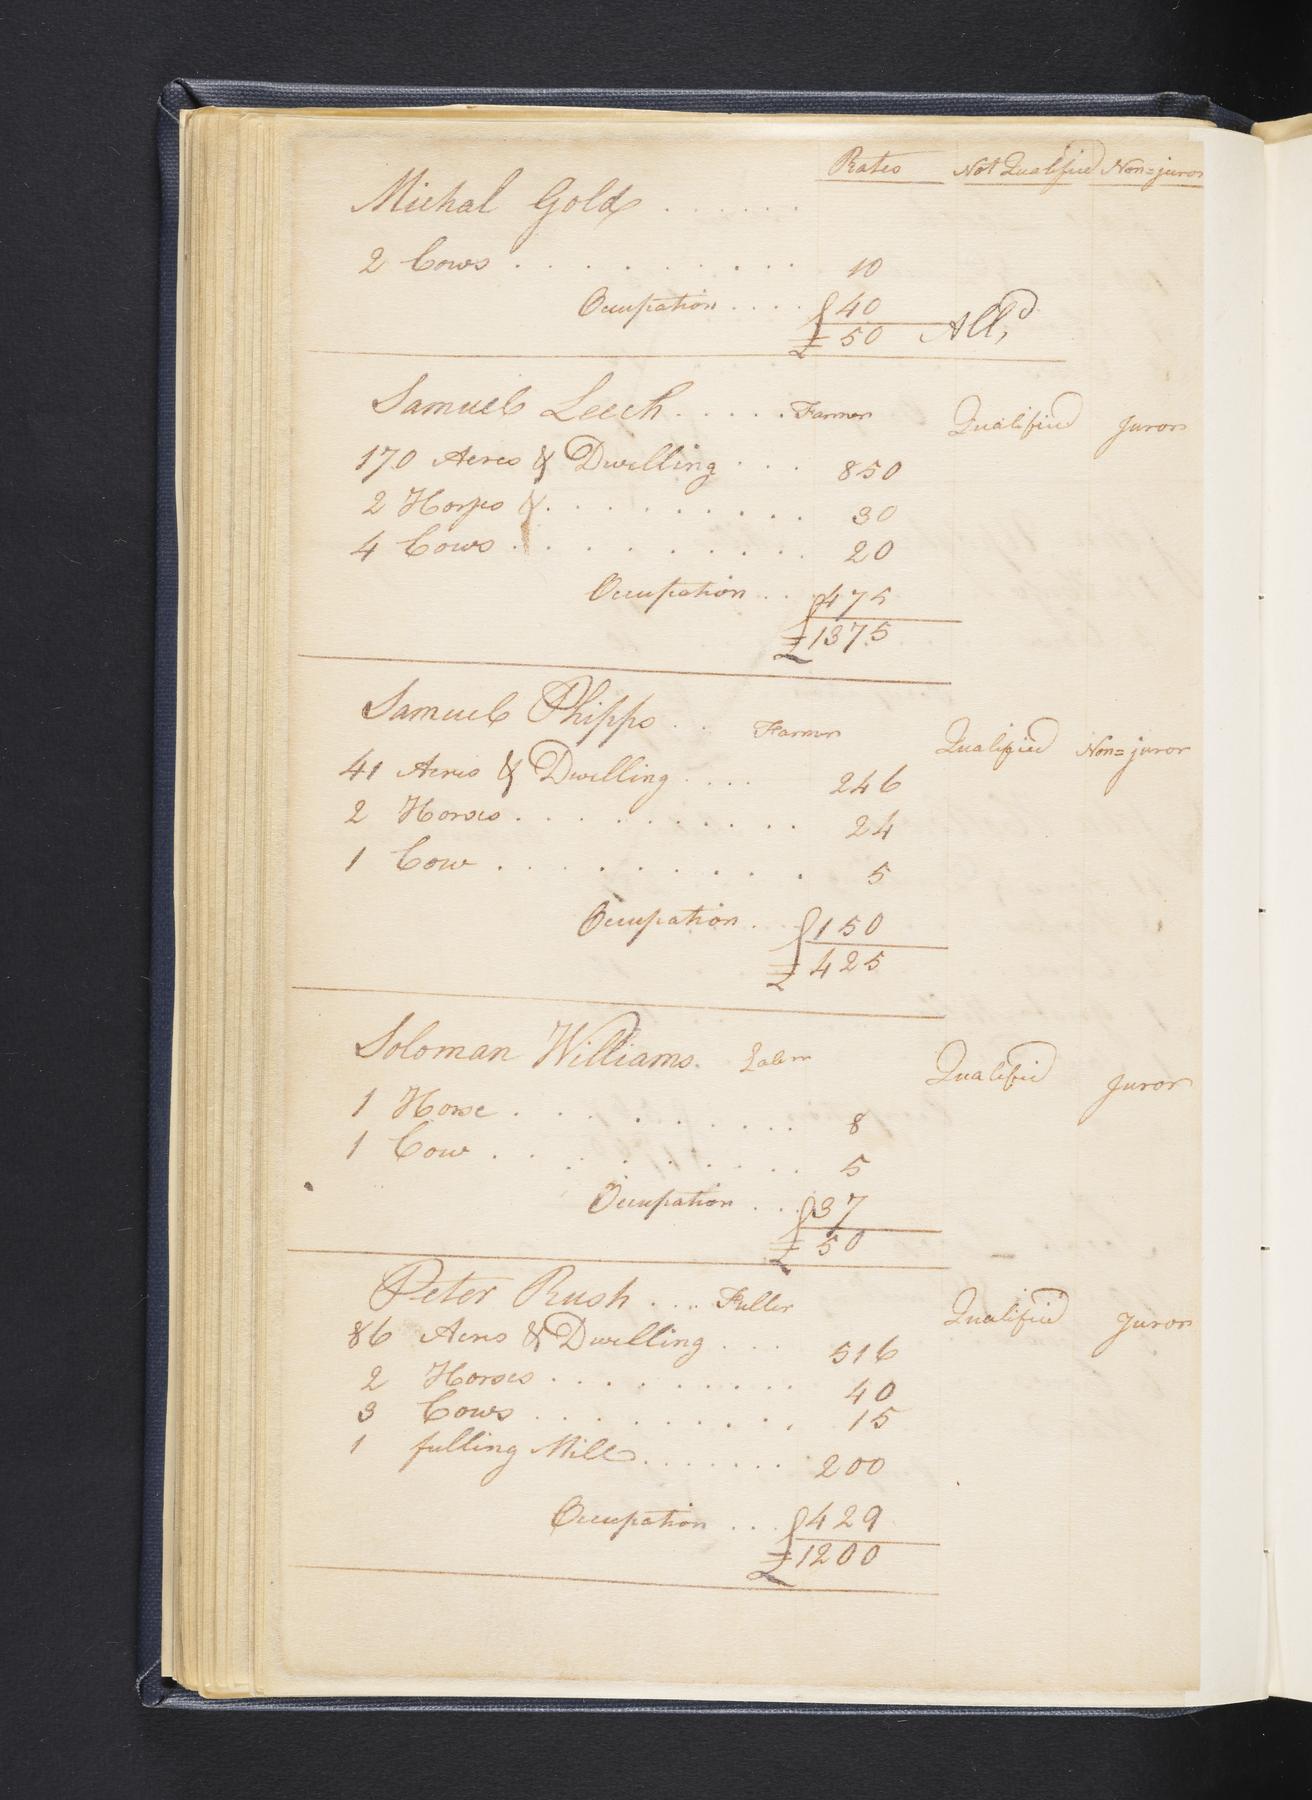 Rates Not Qualified Non=juror
Michal Gold . . . . . .
2 Cows . . . . . . . . 10
Occupation . . . . 40
£ 50 All,d
Samuel Leech . . . . . Farmer Qualified juror
170 Acres & Dwelling . . . 850
2 Horses & . . . . . . . . . 30
4 Cows . . . . . . . . . 20
Occupation . . 475
£ 1375
Samuel Phipps . . Farmer Qualified Non=juror
41 Acres & Dwelling . . . . 246
2 Horses . . . . . . . . . 24
1 Cow . . . . . . . . 5
Occupation . . 150
£ 425
Soloman Williams. Labr Qualified juror
1 Horse . . . . . . . . 8
1 Cow . . . . . . . . . 5
Occupation . . . 37
£ 50
Peter Rush . . . . Fuller Qualified juror
86 Acres & Dwelling . . . 516
2 Horses . . . . . . . . . 40
3 Cows . . . . . . . . . 15
1 fulling Mill . . . . . . . 200
Occupation . . . 429
£ 1200